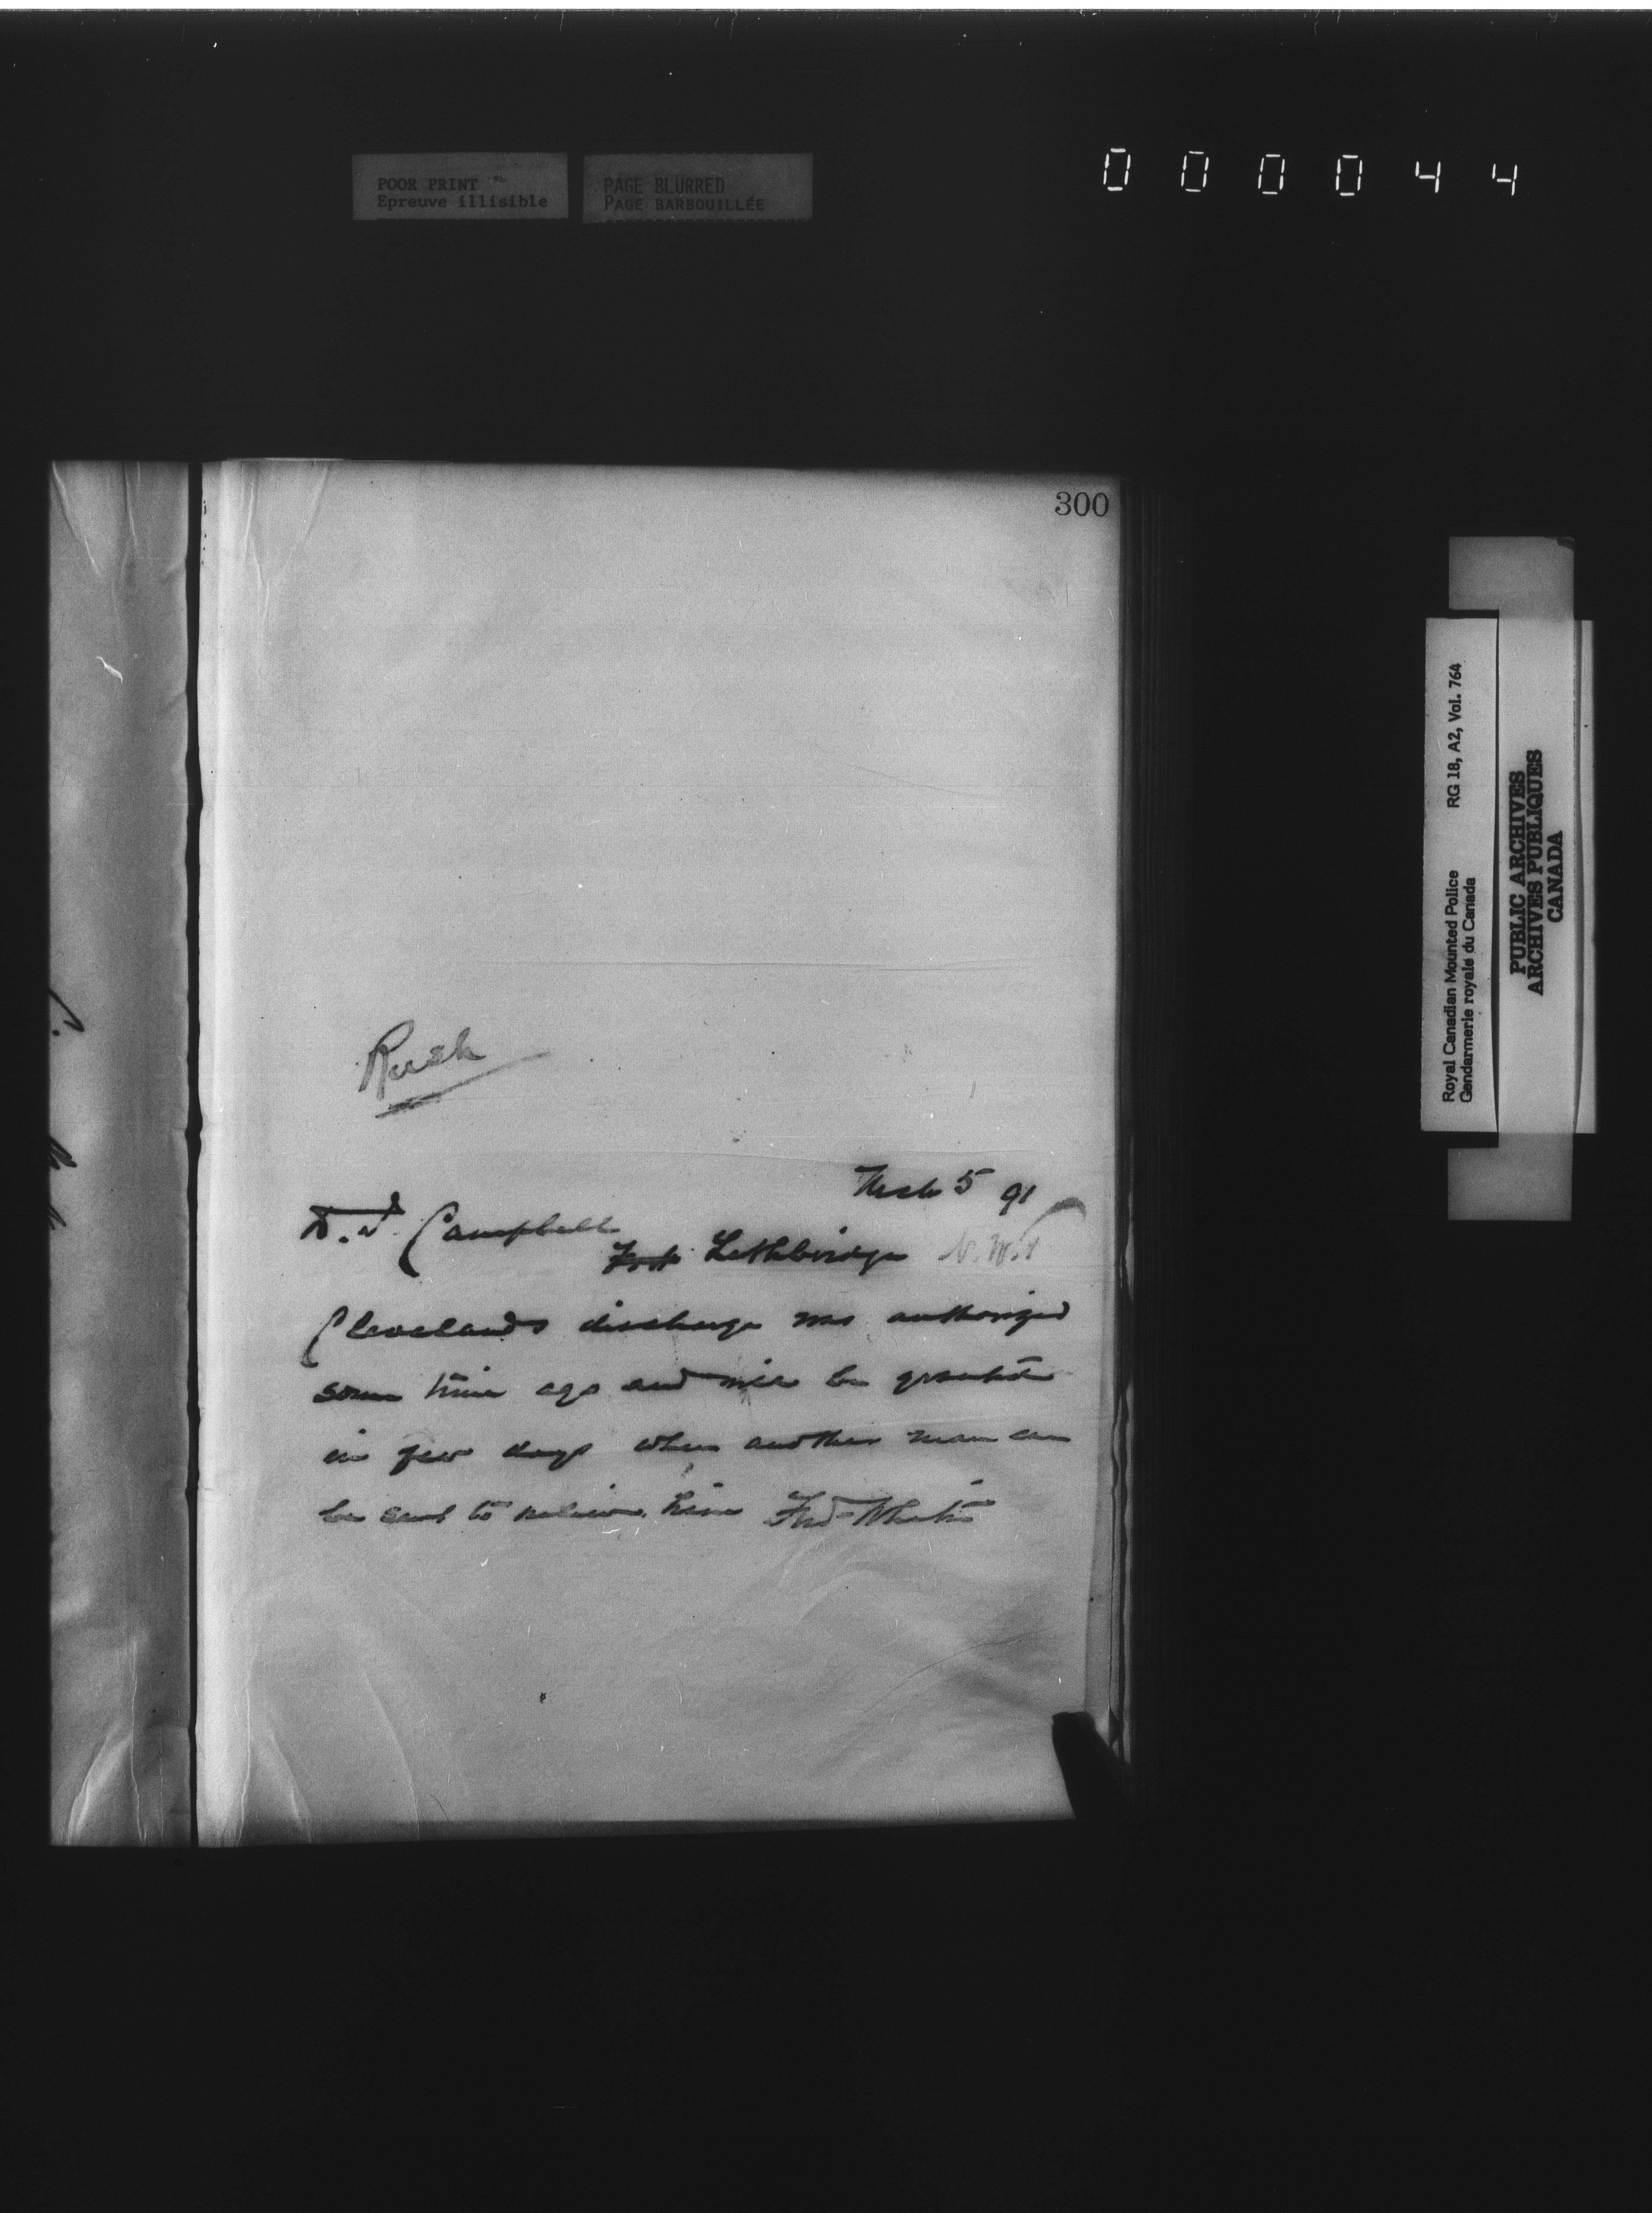 POOR PRINT
Epreuve illisible
PAGE BLURRED
PAGE BARBOUILLÉE
000044
300
Rush
Mch 5 91
D. J. Campbell
Fort Lethbridge N.W.T
Clevelands discharge was authorized
some time ago and will be granted
in few days when another man can
be sent to relieve him Fred White
Royal Canadian Mounted Police RG 18, A2, Vol. 764
Gendarmerie royale du Canada
PUBLIC ARCHIVES
ARCHIVES PUBLIQUES
CANADA